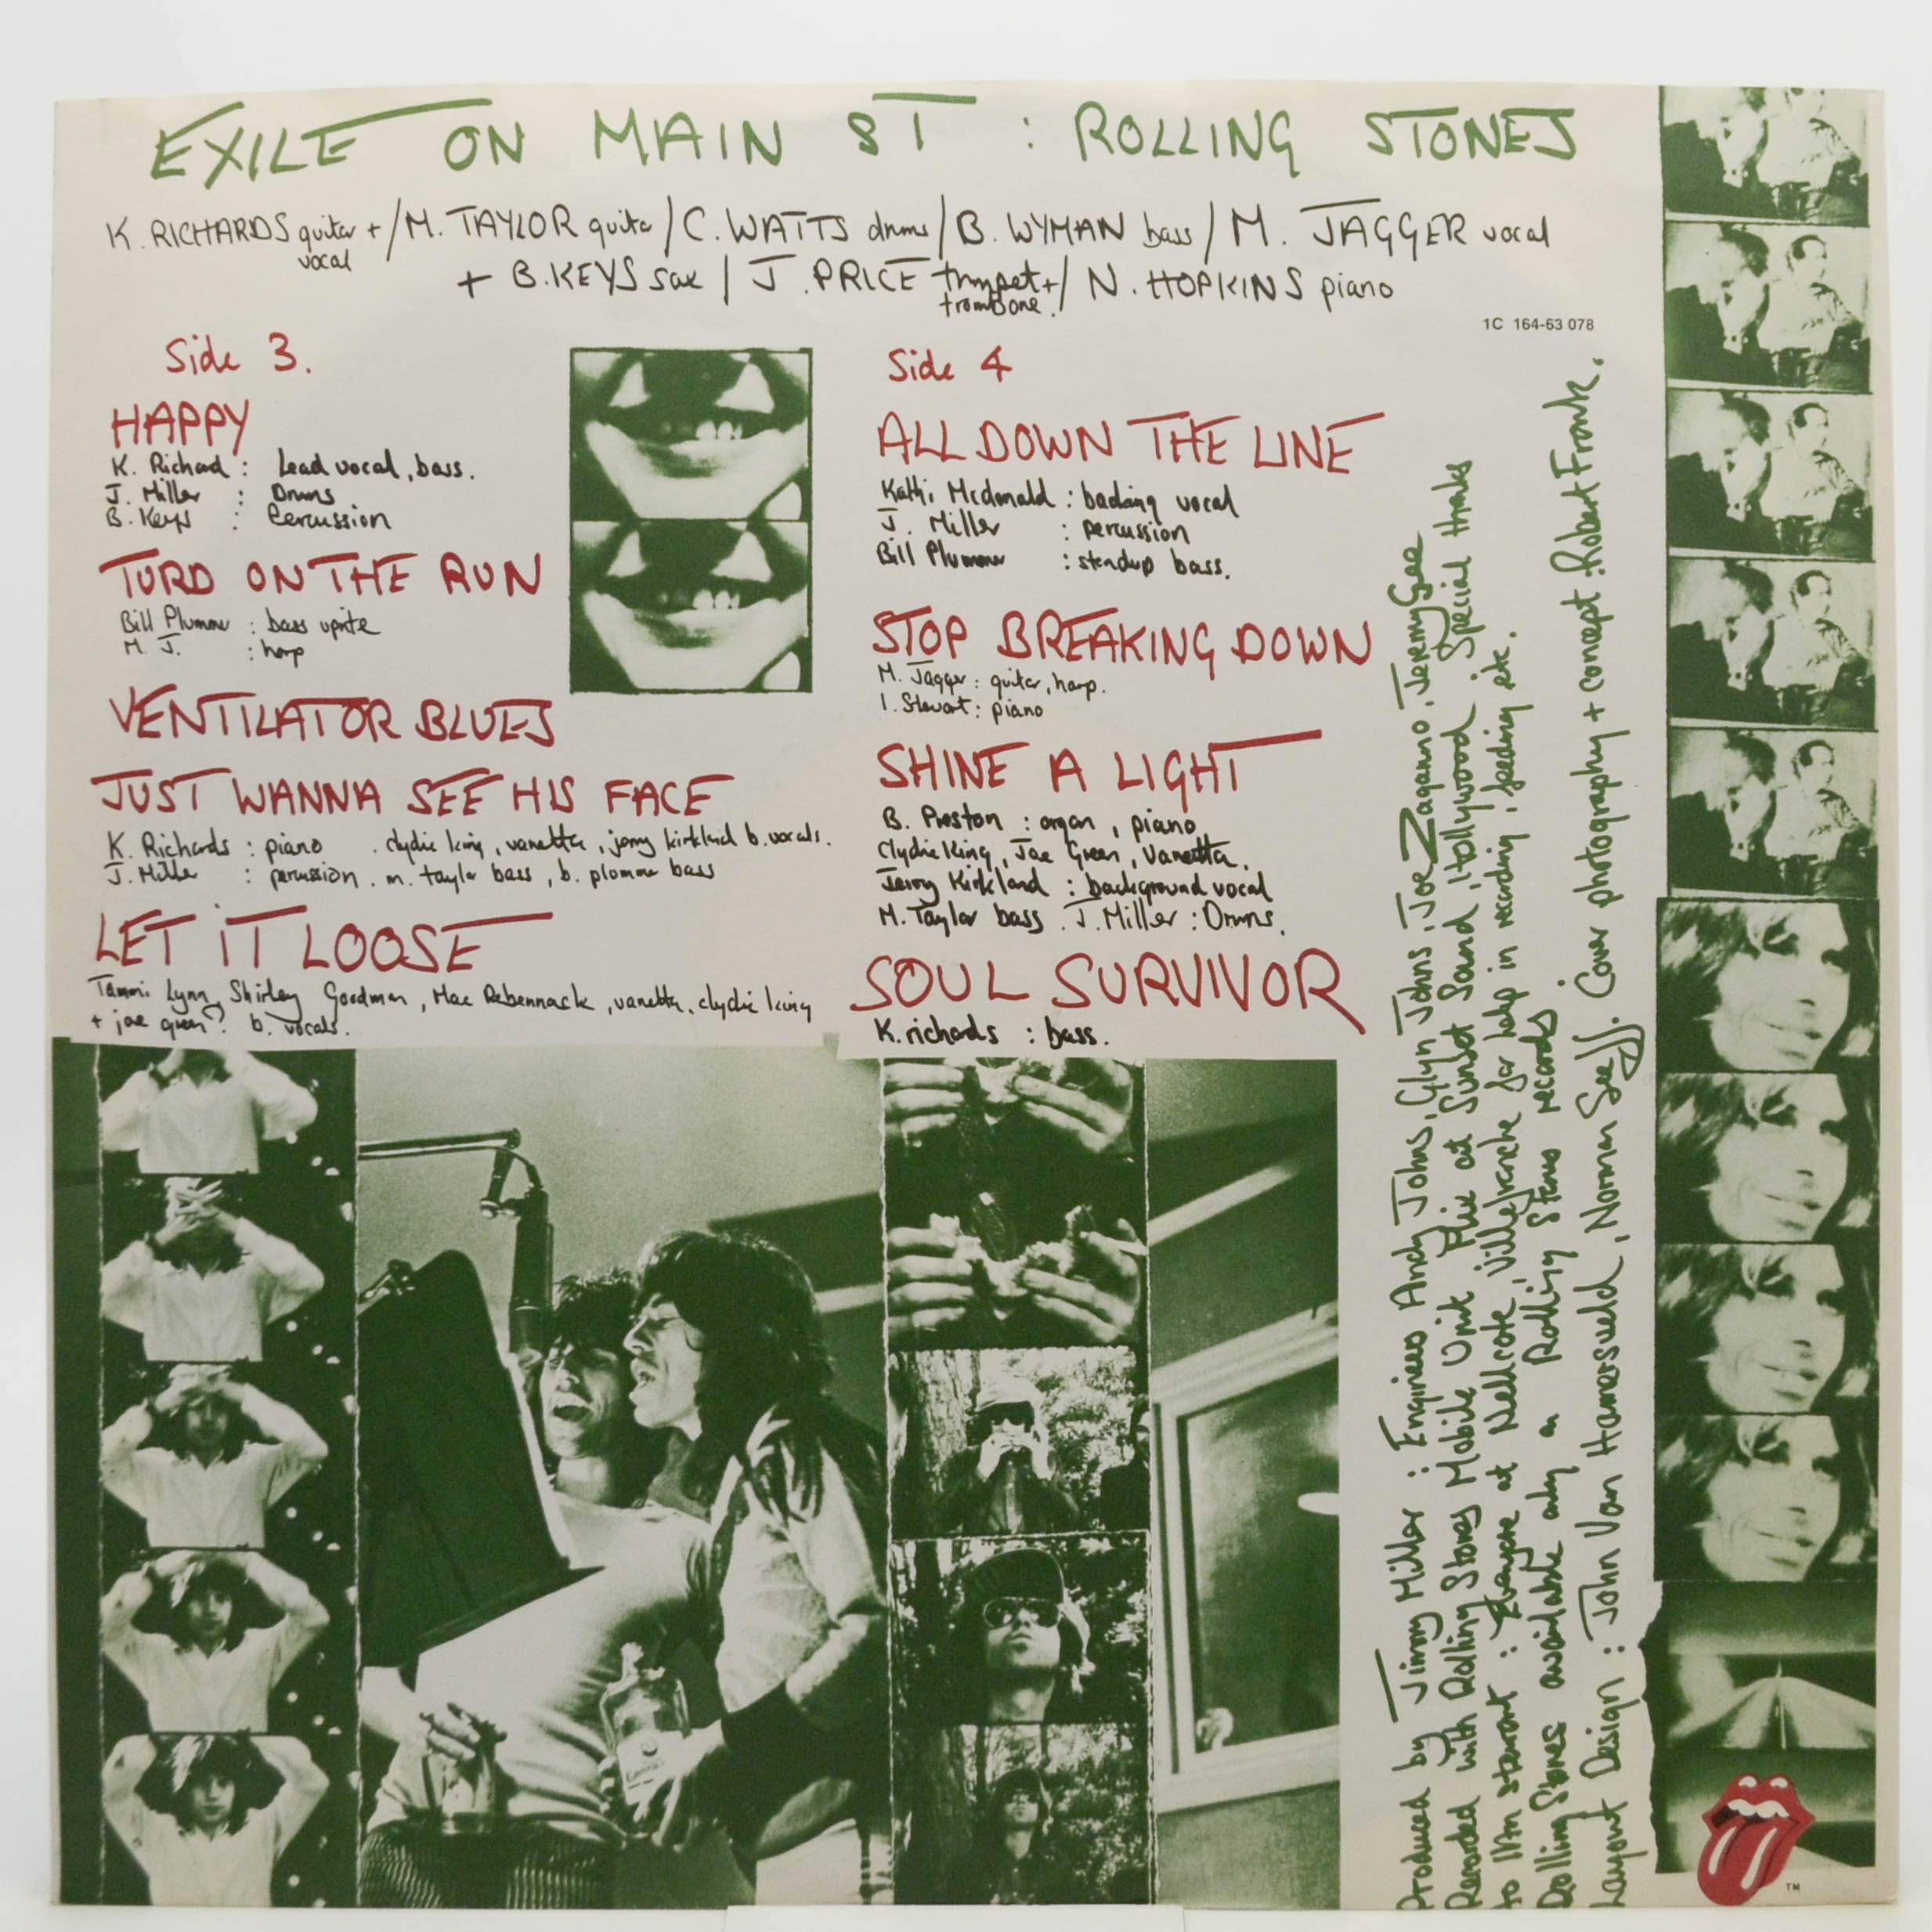 EXILE ON MAIN ST : ROLLING STONES
K. RICHARDS guitar + vocal / M. TAYLOR guitar / C. WATTS drums / B. WYMAN bass / M. JAGGER vocal
+ B. KEYS sax / J. PRICE trumpet + trombone. / N. HOPKINS piano
1C 164-63 078
Side 3.
HAPPY
K. Richard : Lead vocal, bass.
J. Miller : Drums
B. Keys : Percussion
TURD ON THE RUN
Bill Plummer : bass uprite
M. J. : harp
VENTILATOR BLUES
JUST WANNA SEE HIS FACE
K. Richards : piano . clydie king, vanetta, jerry kirkland b. vocals.
J. Miller : percussion . m. taylor bass, b. plommer bass
LET IT LOOSE
Tammi Lynn, Shirley Goodman, Mac Rebennack, vanetta, clydie king
+ joe green? b. vocals.
Side 4
ALL DOWN THE LINE
Kathi Mcdonald : backing vocal
J. Miller : percussion
Bill Plummer : standup bass.
STOP BREAKING DOWN
M. Jagger : guitar, harp.
I. Stewart : piano
SHINE A LIGHT
B. Preston : organ, piano
Clydie King, Joe Green, Vanetta,
Jerry Kirkland : background vocal
M. Taylor bass . J. Miller : Drums.
SOUL SURVIVOR
K. richards : bass.
Produced by Jimmy Miller : Engineers Andy Johns, Glyn Johns, Joe Zagarino, Jeremy Gee
Recorded with Rolling Stones Mobile Unit Plus at Sunset Sound, Hollywood Special thanks
to Ian stewart : Everyone at Nellcote, Villefranche for help in recording, feeding etc.
Rolling Stones available only on Rolling Stones records
Layout Design : John Van Hamersveld, Norman Seeff. Cover photography + concept : Robert Frank.
TM